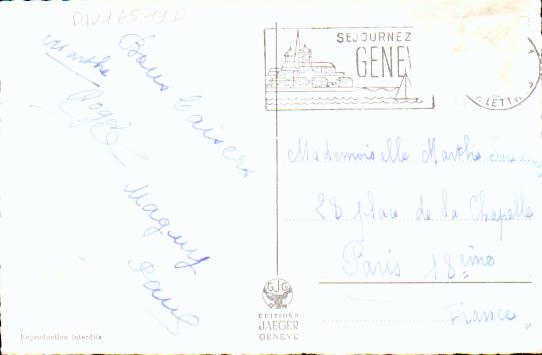 DIV165-19D
Bons baisers
Marthe
Roger
Maguy
SEJOURNEZ
GENE
LETT
Mademoiselle Marthe
28 place de la Chapelle
Paris 18ème
France
GJG
EDITIONS
JAEGER
GENEVE
Reproduction interdite